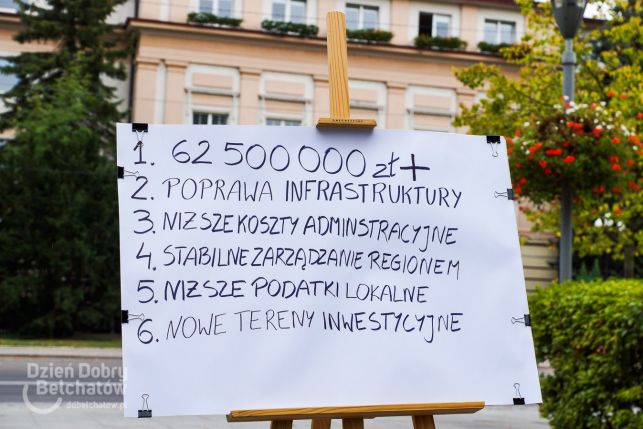 1. 62 500 000 zł +
2. POPRAWA INFRASTRUKTURY
3. NIŻSZE KOSZTY ADMINSTRACYJNE
4. STABILNE ZARZĄDZANIE REGIONEM
5. NIŻSZE PODATKI LOKALNE
6. NOWE TERENY INWESTYCYJNE
Dzień Dobry
Bełchatów
ddbelchatow.pl